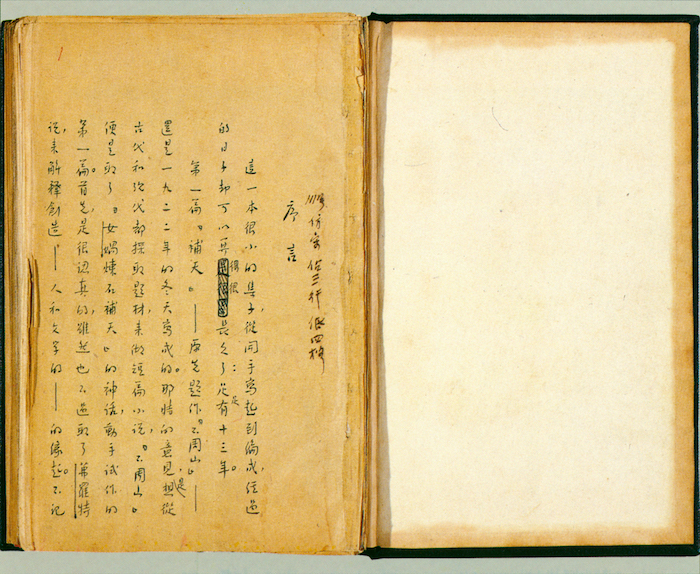 仿宋 佔三行 低四格
序言
這一本很小的集子，從開手寫起到編成，經過
的日子却可以算得很長久了：足足有十三年。
第一篇『補天』——原先題作『不周山』——
還是一九二二年的冬天寫成的。那時的意見，是想從
古代和現代都採取題材，來做短篇小說，『不周山』
便是取了『女媧煉石補天』的神話，動手試作的
第一篇。首先，是很認真的，雖然也不過取了茀羅特
說，來解釋創造——人和文學的——的緣起。不記